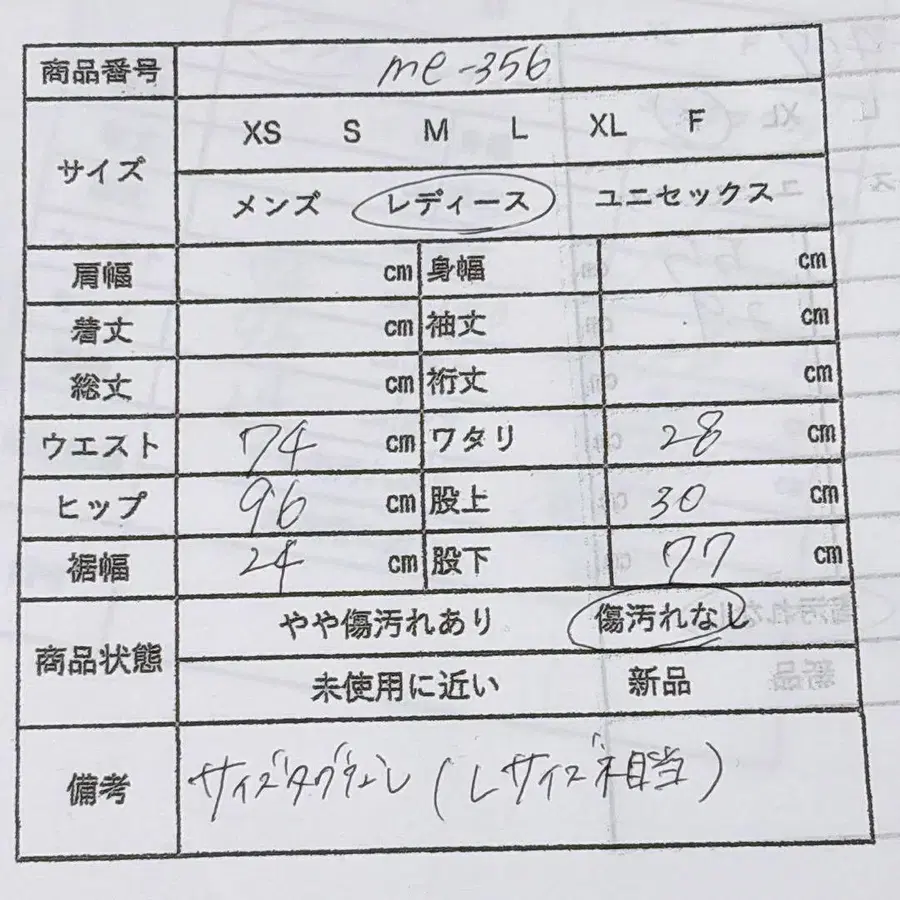 商品番号 me-356
サイズ XS S M L XL F
メンズ レディース ユニセックス
肩幅 cm 身幅 cm
着丈 cm 袖丈 cm
総丈 cm 裄丈 cm
ウエスト 74 cm ワタリ 28 cm
ヒップ 96 cm 股上 30 cm
裾幅 24 cm 股下 77 cm
商品状態 やや傷汚れあり 傷汚れなし
未使用に近い 新品
備考 サイズタグなし (Lサイズ相当)